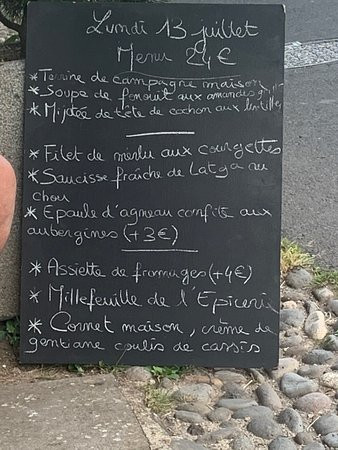 Lundi 13 juillet
Menu 24€
* Terrine de campagne maison
* Soupe de fenouil aux amandes
* Mijotée de tête de cochon aux lentilles
* Filet de merlu aux courgettes
* Saucisse fraîche de Latga au
chou
* Epaule d'agneau confite aux
aubergines (+3€)
* Assiette de fromages (+4€)
* Millefeuille de l'Epicerie
* Cornet maison, crème de
gentiane coulis de cassis